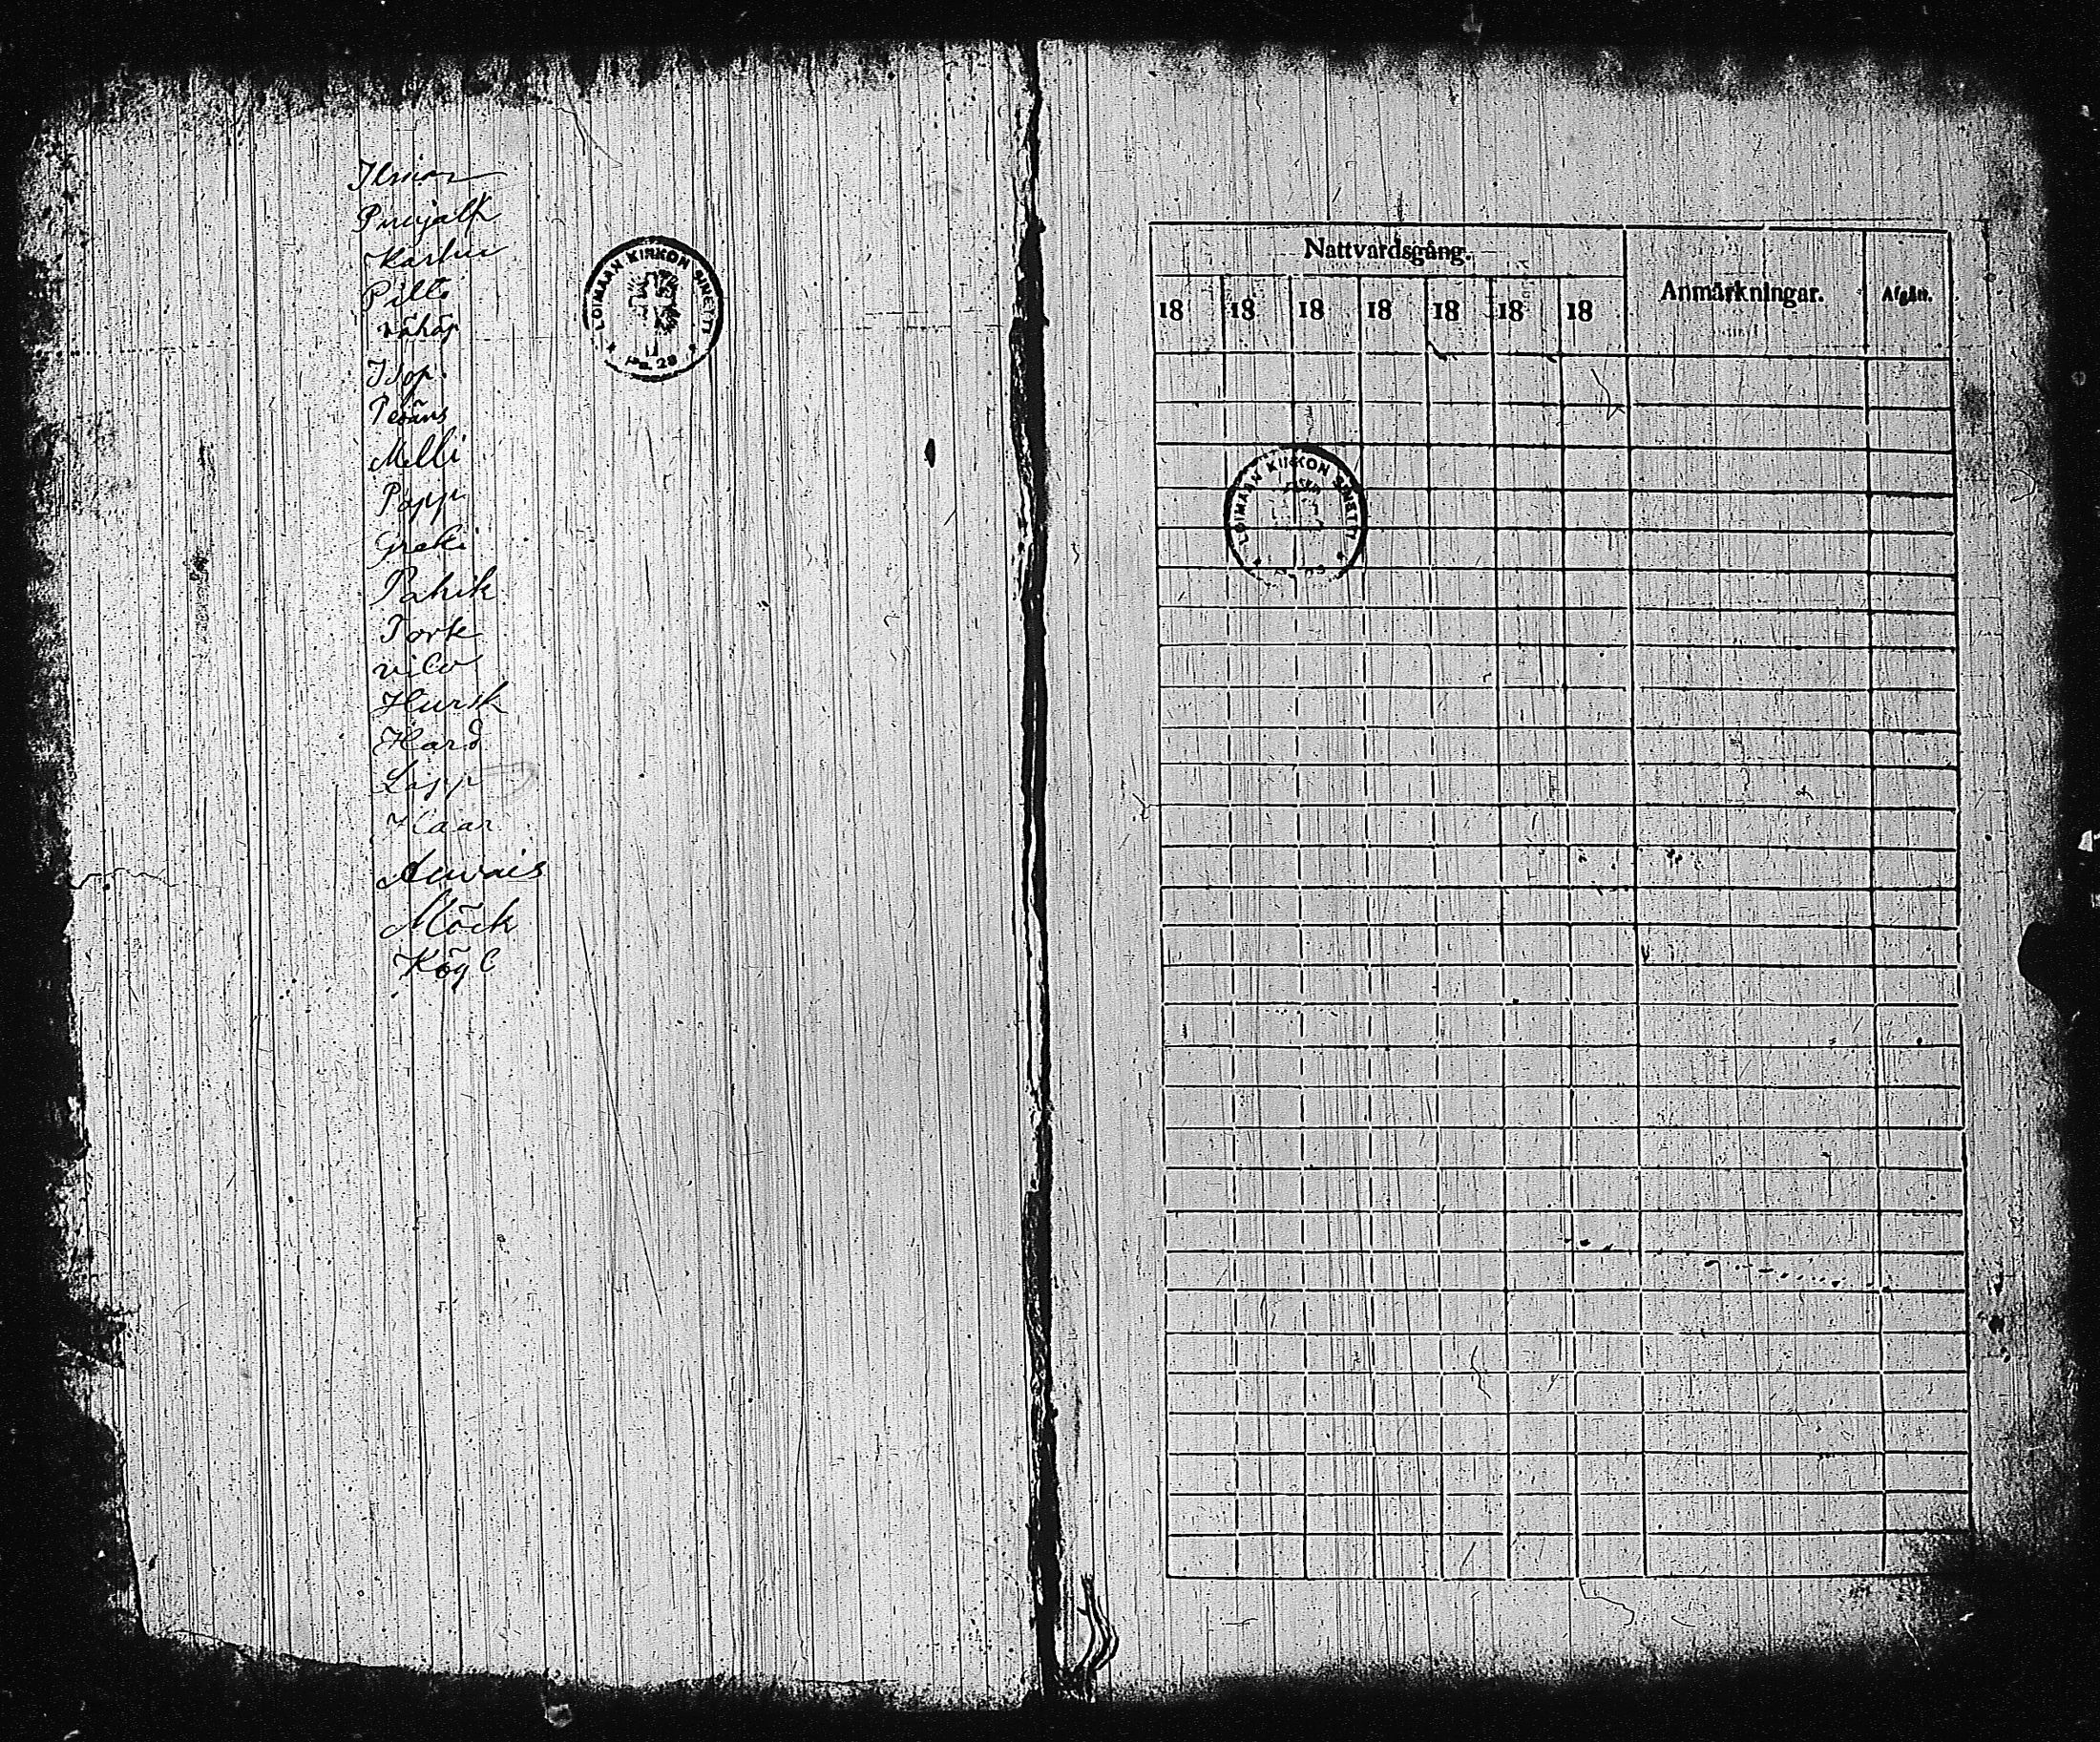 Ilmar
Puujalk
Karhu
Piltti
vähäp
Isop
Peräns
Melli
Papp
Greki
Pahik
Tork
vilv
Hursk
Hard
Lapp
Haar
Auvais
Möck
Kög C
LOIMAAN KIRKON SINETTI
Nattvardsgång. Anmärkningar. Afgått.
18 18 18 18 18 18 18
LOIMAAN KIRKON SINETTI